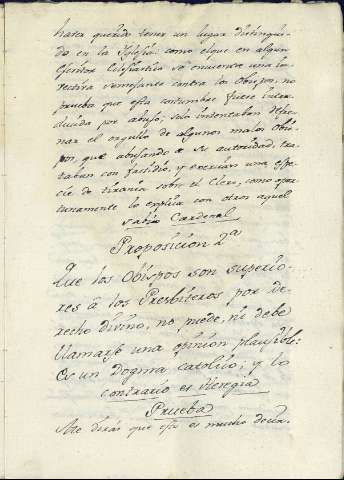 haya querido tener un lugar distingui-
do en la Iglesia: como el que en algun
Escritor Eclesiastico se encuentre una in-
vectiva semejante contra los Obispos, no
prueba que esta costumbre fuese intro-
ducida por abuso; solo intentaban refre-
nar el orgullo de algunos malos Obis-
pos, que abusando de su autoridad, tra-
taban con fastidio, y exercian una espe-
cie de tirania sobre el Clero, como opor-
tunamente lo explica con otros aquel
sabio Cardenal
Proposicion 2ª
Que los Obispos son superio-
res á los Presbiteros por de-
recho divino, no puede, ni debe
llamarse una opinion plausible:
Es un Dogma catolico, y lo
contrario es Heregia
Prueba
Me dirás que esto es mucho decir.